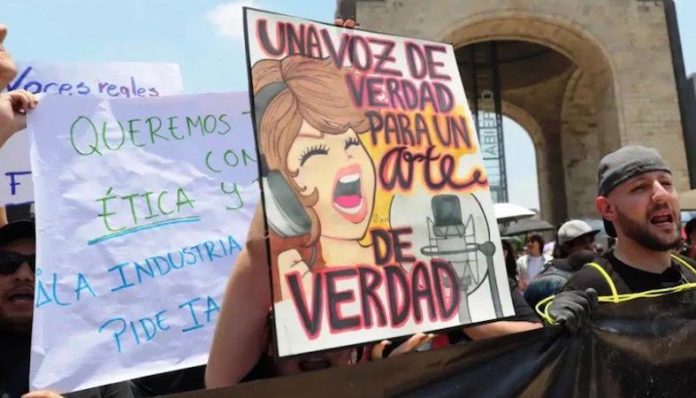 Voces reales
QUEREMOS
CON
ÉTICA Y
LA INDUSTRIA
PIDE IA
UNA VOZ DE
VERDAD
PARA UN
arte
DE
VERDAD